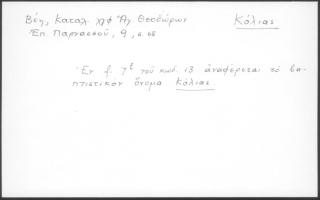 Βέη, Καταλ. χφ Ἁγ. Θεοδώρων Κόλιας
Ἐπ. Παρνασσοῦ, 9, σ. 68
Ἐν f. 7ᵗ τοῦ κωδ. 13 ἀναφέρεται τὸ βα-
πτιστικὸν ὄνομα Κόλιας.